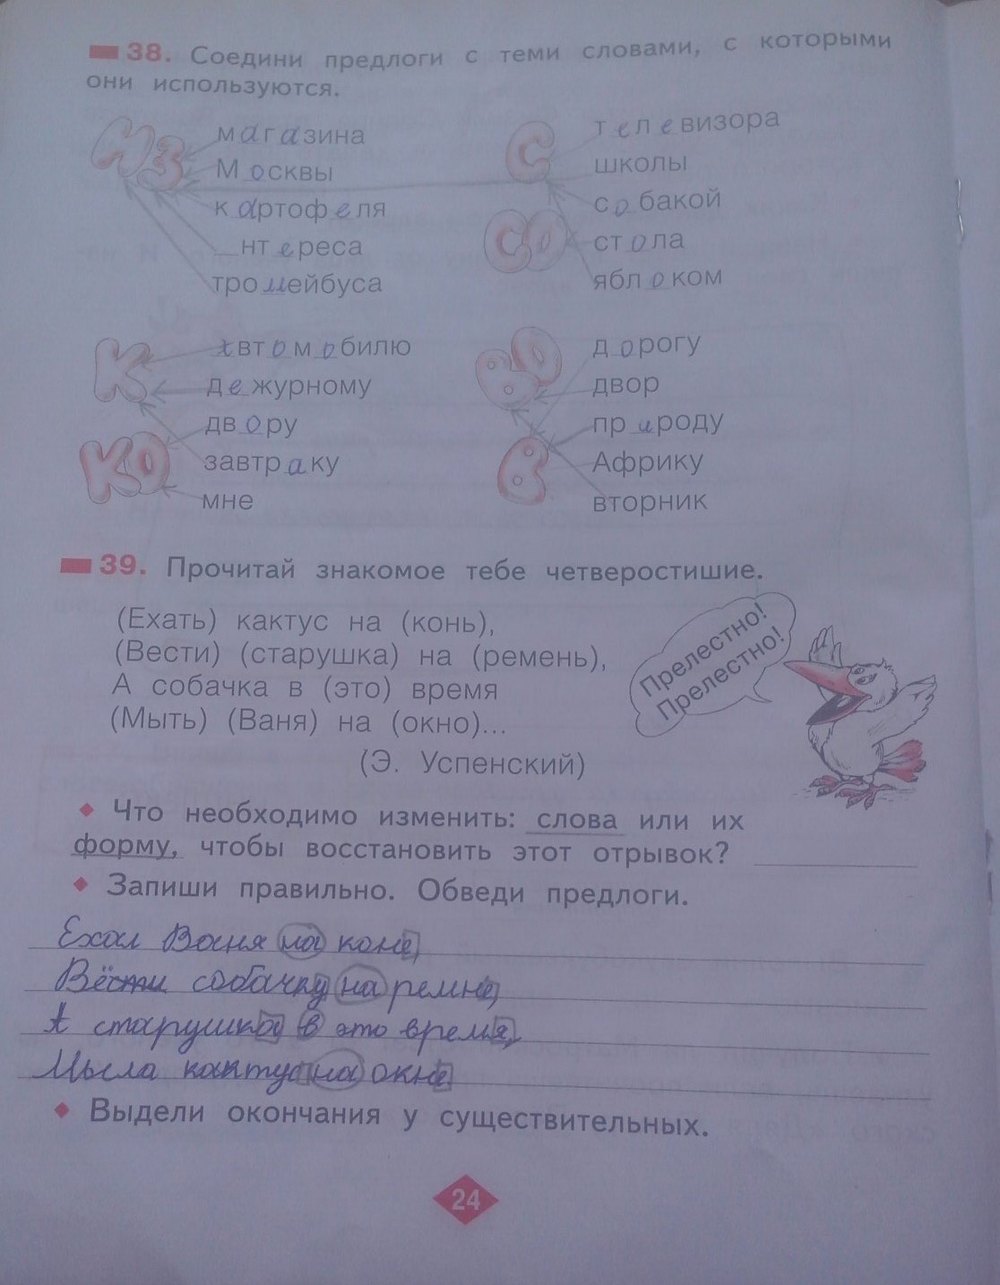 38. Соедини предлоги с теми словами, с которыми
они используются.
ИЗ
магазина
Москвы
картофеля
_нтереса
тромейбуса
С
СО
телевизора
школы
собакой
стола
яблоком
К
КО
автомобилю
дежурному
двору
завтраку
мне
ВО
В
дорогу
двор
природу
Африку
вторник
39. Прочитай знакомое тебе четверостишие.
(Ехать) кактус на (конь),
(Вести) (старушка) на (ремень),
А собачка в (это) время
(Мыть) (Ваня) на (окно)...
(Э. Успенский)
Прелестно!
Прелестно!
Что необходимо изменить: слова или их
форму, чтобы восстановить этот отрывок?
Запиши правильно. Обведи предлоги.
Ехал Ваня на коне,
Вёсти собачку на ремне,
А старушка в это время,
Мыла кактус на окне
Выдели окончания у существительных.
24